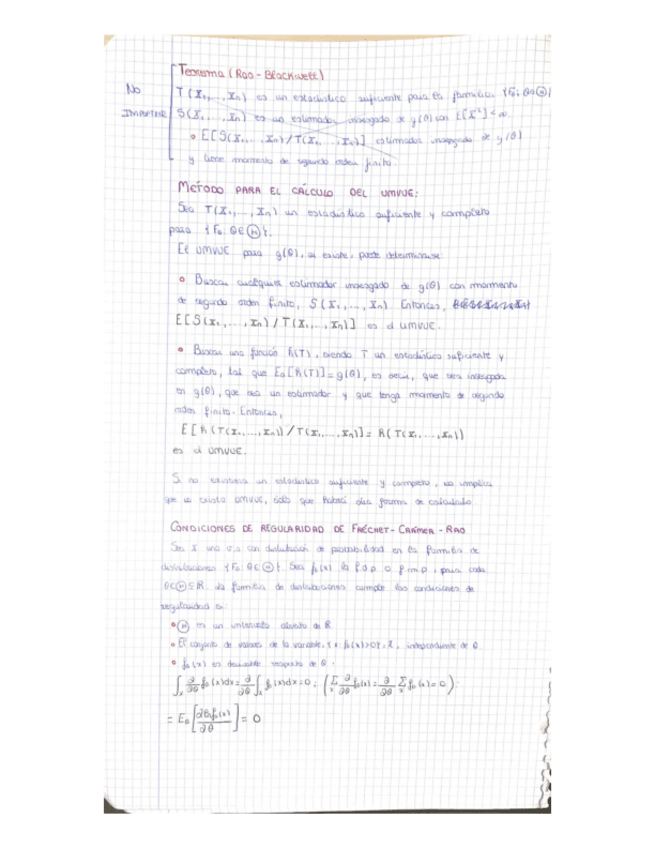 Teorema (Rao-Blackwell)
No T(X₁,...,Xn) es un estadístico suficiente para la familia {Fθ; θ∈Θ}
IMPORTAR S(X₁,...,Xn) es un estimador insesgado de g(θ) con E[X²]<∞
• E[S(X₁,...,Xn)/T(X₁,...,Xn)] estimador insesgado de g(θ)
y tiene momento de segundo orden finito.
MÉTODO PARA EL CÁLCULO DEL UMVUE:
Sea T(X₁,...,Xn) un estadístico suficiente y completo
para {Fθ; θ∈Θ}.
El UMVUE para g(θ), si existe, puede determinarse:
• Buscar cualquier estimador insesgado de g(θ) con momento
de segundo orden finito, S(X₁,...,Xn). Entonces,
E[S(X₁,...,Xn)/T(X₁,...,Xn)] es el UMVUE.
• Buscar una función h(T), siendo T un estadístico suficiente y
completo, tal que Eθ[h(T)]=g(θ), es decir, que sea insesgada
en g(θ), que sea un estimador y que tenga momento de segundo
orden finito. Entonces,
E[h(T(X₁,...,Xn))/T(X₁,...,Xn)]=h(T(X₁,...,Xn))
es el UMVUE.
Si no existiera un estadístico suficiente y completo, no implica
que no exista UMVUE, sólo que habrá otra forma de calcularlo.
CONDICIONES DE REGULARIDAD DE FRÉCHET-CRAMER-RAO
Sea X una v.a con distribución de probabilidad en la familia de
distribuciones {Fθ; θ∈Θ}. Sea fθ(x) la f.d.p. o f.m.p., para cada
θ∈Θ⊆ℝ. La familia de distribuciones cumple las condiciones de
regularidad si:
• Θ es un intervalo abierto de ℝ.
• El conjunto de valores de la variable, {x: fθ(x)>0}=χ, independiente de θ.
• fθ(x) es derivable respecto de θ.
∫χ ∂/∂θ fθ(x)dx = ∂/∂θ ∫χ fθ(x)dx = 0; (Σχ ∂/∂θ fθ(x) = ∂/∂θ Σχ fθ(x) = 0)
= Eθ[∂ln fθ(x)/∂θ] = 0